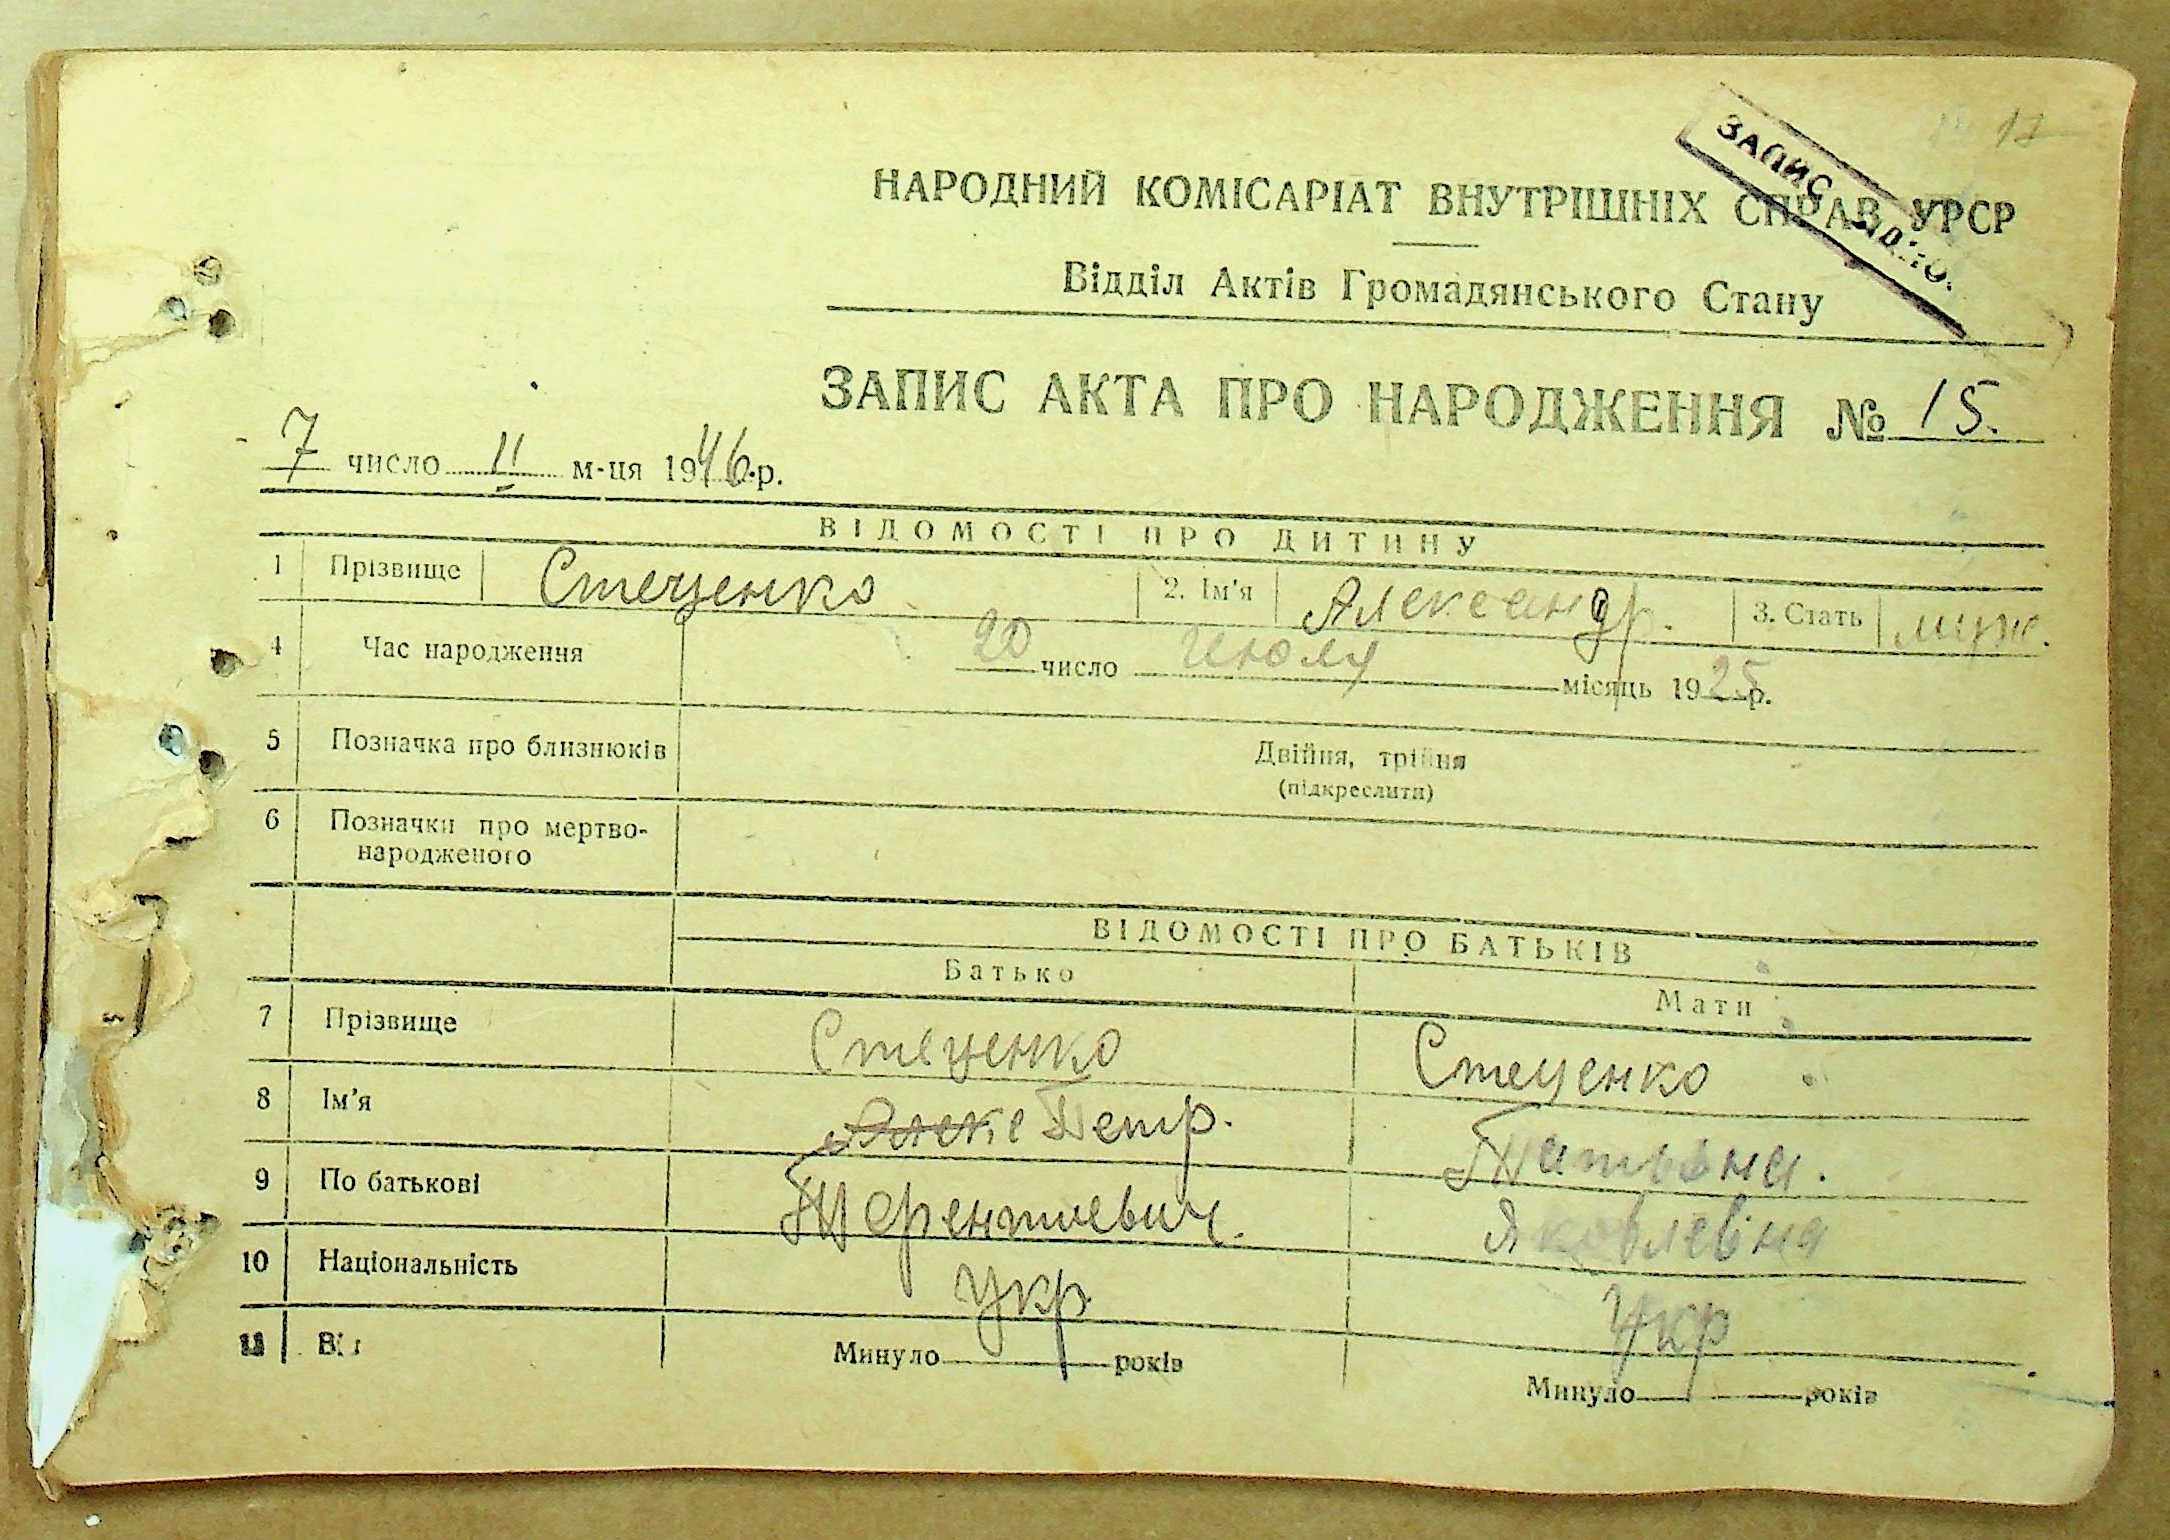 17
ЗАПИС
НАРОДНИЙ КОМІСАРІАТ ВНУТРІШНІХ СПРАВ УРСР
Відділ Актів Громадянського Стану
ЗАПИС АКТА ПРО НАРОДЖЕННЯ № 15.
7 число II м-ця 1946.р.
ВІДОМОСТІ ПРО ДИТИНУ
1 Прізвище Стеценко 2. Ім'я Александр. 3. Стать муж.
4 Час народження 20 число Июля місяць 1925 р.
5 Позначка про близнюків Двійня, трійня
(підкреслити)
6 Позначки про мертво-
народженого
ВІДОМОСТІ ПРО БАТЬКІВ
Батько Мати
7 Прізвище Стеценко Стеценко
8 Ім'я Петр. Татьяна.
9 По батькові Терентиевич. Яковлевна
10 Національність Укр Укр
11 Вік Минуло років Минуло років